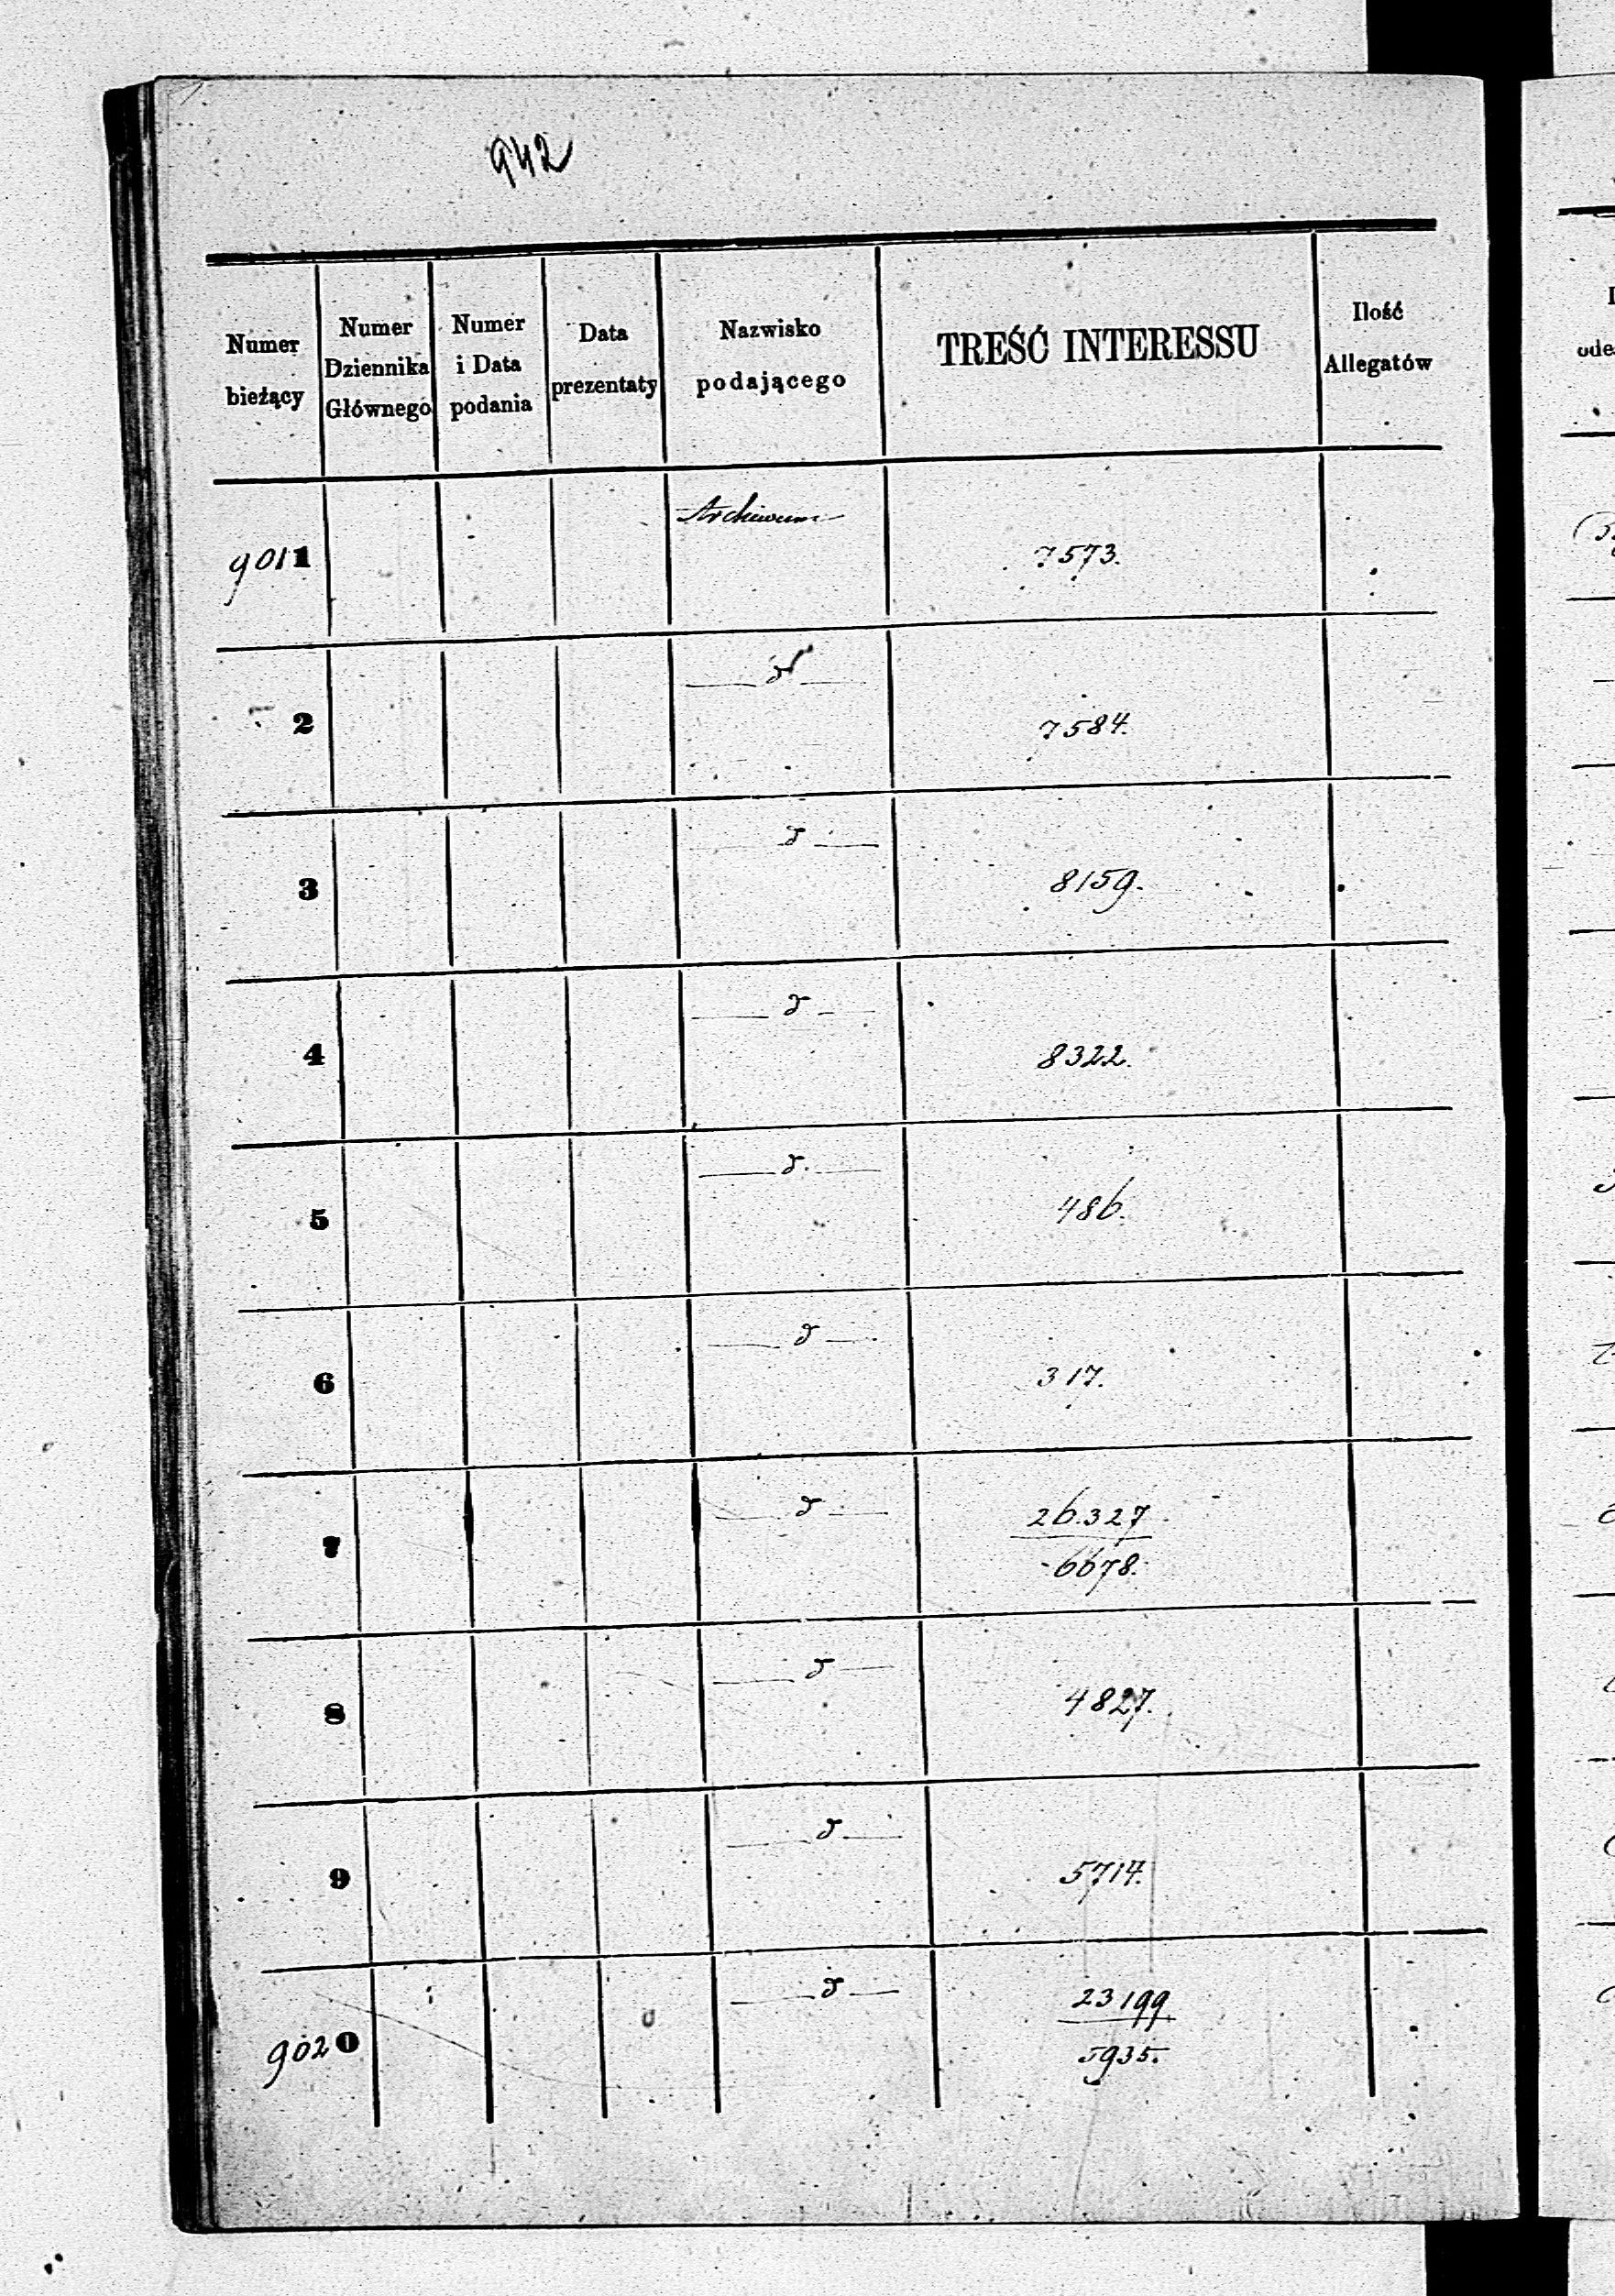 942
Numer bieżący
Numer Dziennika Głównego
Numer i Data podania
Data prezentaty
Nazwisko podającego
TREŚĆ INTERESSU
Ilość Allegatów
9011 Archiwum 7573.
2 d 7584.
3 d 8159.
4 d 8322.
5 d. 486.
6 d 317.
7 d 26.327
6678.
8 d 4827.
9 d 5714.
9020 d 23199
5935.